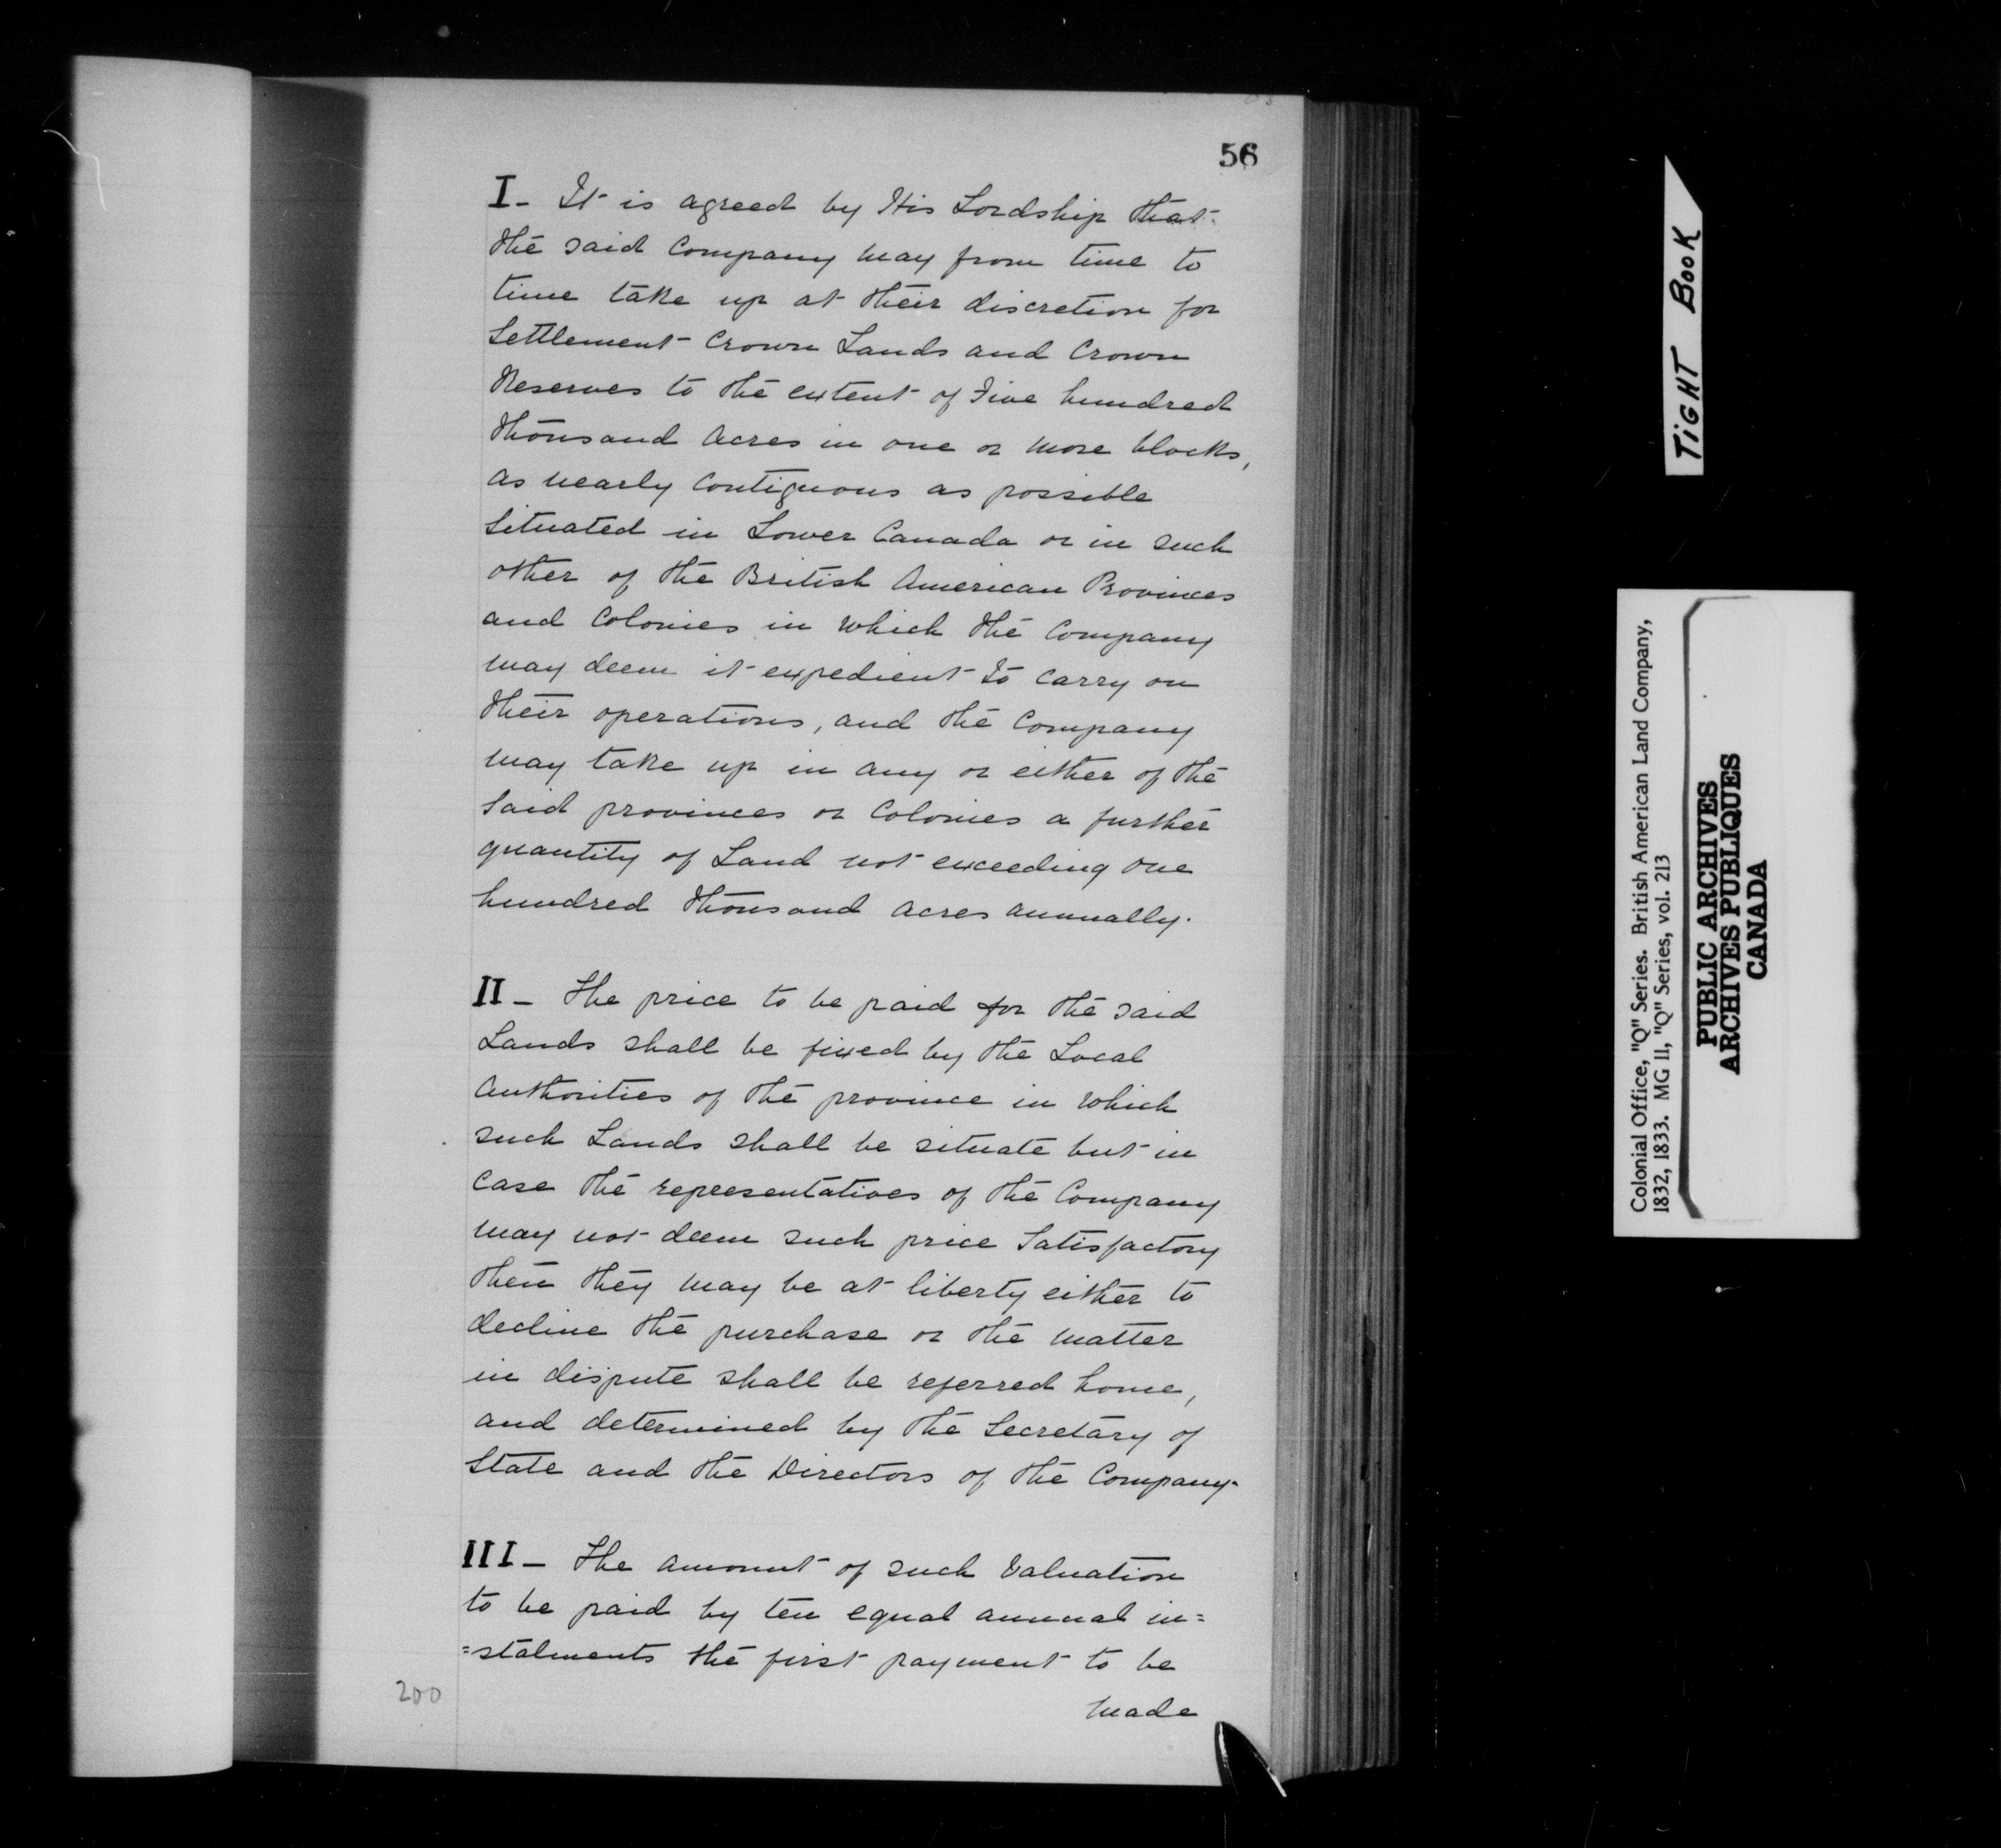 56
I - It is agreed by His Lordship that
the said Company may from time to
time take up at their discretion for
Settlement Crown Lands and Crown
Reserves to the extent of Five hundred
thousand Acres in one or more blocks,
as nearly Contiguous as possible
Situated in Lower Canada or in such
other of the British American Provinces
and Colonies in which the Company
may deem it expedient to carry on
their operations, and the Company
may take up in any or either of the
said provinces or Colonies a further
quantity of Land not exceeding one
hundred thousand acres annually.
II - The price to be paid for the said
Lands shall be fixed by the Local
Authorities of the province in which
such Lands shall be situate but in
Case the representatives of the Company
may not deem such price Satisfactory
then they may be at liberty either to
decline the purchase or the matter
in dispute shall be referred home,
and determined by the Secretary of
State and the Directors of the Company.
III - The amount of such Valuation
to be paid by ten equal annual in=
=stalments the first payment to be
made
200
TIGHT BOOK
Colonial Office, "Q" Series. British American Land Company,
1832, 1833. MG 11, "Q" Series, vol. 213
PUBLIC ARCHIVES
ARCHIVES PUBLIQUES
CANADA